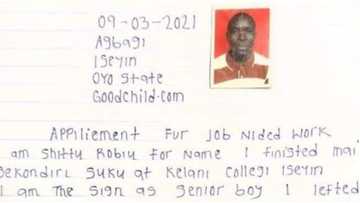 09-03-2021
Agbagi
Iseyin
Oyo State
Goodchild.com
Appiliement Fur Job Nided Work
I am Shittu Robiu For Name I finisted mai
Sekondiri Suku at Kelani Collegi Iseyin
I am The Sign as Senior boy I lefted